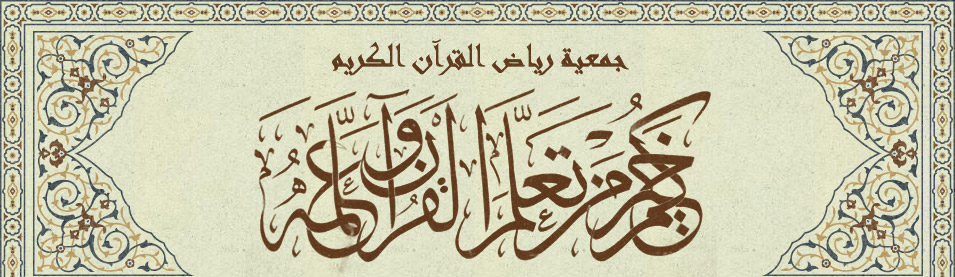 جمعية رياض القرآن الكريم
خيركم من تعلم القرآن وعلمه